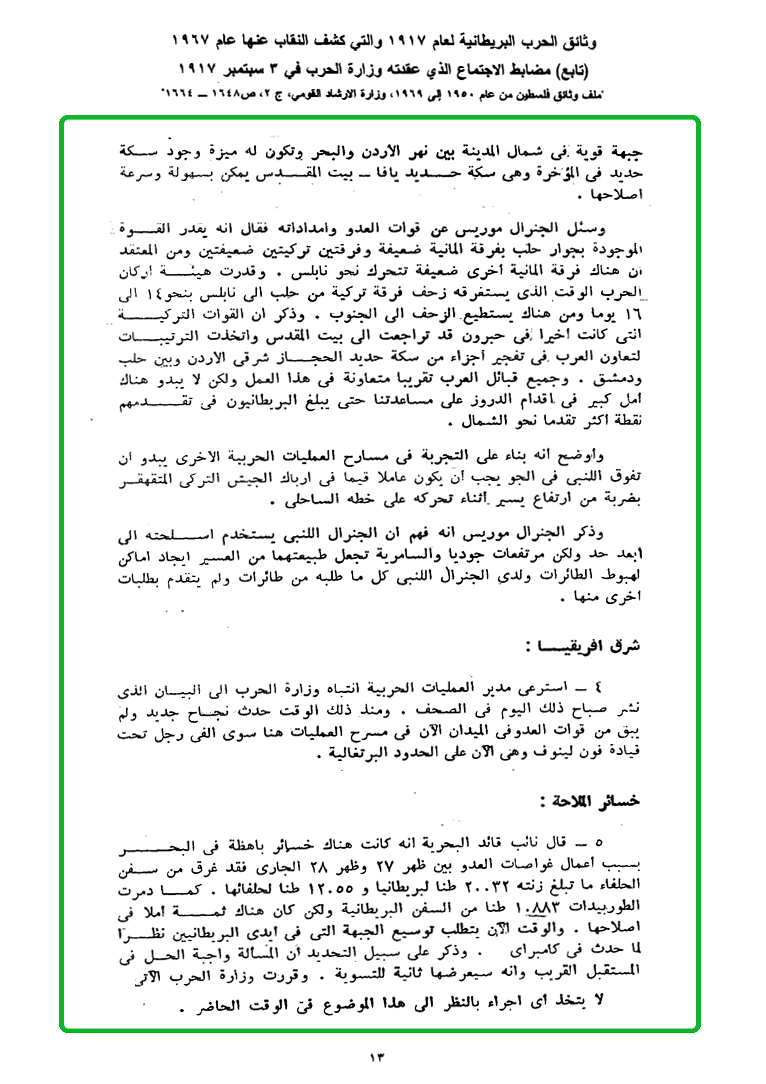 وثائق الحرب البريطانية لعام ١٩١٧ والتي كشف النقاب عنها عام ١٩٦٧
(تابع) مضابط الاجتماع الذي عقدته وزارة الحرب في ٣ سبتمبر ١٩١٧
"ملف وثائق فلسطين من عام ١٩٥٠ إلى ١٩٦٩، وزارة الارشاد القومي، ج ٢، ص١٦٤٨ ــ ١٦٦٤"
جبهة قوية فى شمال المدينة بين نهر الاردن والبحر وتكون له ميزة وجود سكة
حديد فى المؤخرة وهى سكة حـــديد يافا ــ بيت المقـدس يمكن بسهولة وسرعة
اصلاحها .
وسئل الجنرال موريس عن قوات العدو وامداداته فقال انه يقدر القـــوة
الموجودة بجوار حلب بفرقة المانية ضعيفة وفرقتين تركيتين ضعيفتين ومن المعتقد
ان هناك فرقة المانية أخرى ضعيفة تتحرك نحو نابلس . وقدرت هيئـــة أركان
الحرب الوقت الذى يستغرقه زحف فرقة تركية من حلب الى نابلس بنحو١٤ الى
١٦ يوما ومن هناك يستطيع الزحف الى الجنوب . وذكر ان القوات التركيـــة
التى كانت أخيرا فى حبرون قد تراجعت الى بيت المقدس واتخذت الترتيبـــات
لتعاون العرب فى تفجير أجزاء من سكة حديد الحجــاز شرقى الاردن وبين حلب
ودمشق . وجميع قبائل العرب تقريبا متعاونة فى هذا العمل ولكن لا يبدو هناك
أمل كبير فى اقدام الدروز على مساعدتنا حتى يبلغ البريطانيون فى تقـــدمهم
نقطة أكثر تقدما نحو الشمال .
وأوضح أنه بناء على التجربة فى مسارح العمليات الحربية الاخرى يبدو ان
تفوق اللنبى فى الجو يجب أن يكون عاملا قيما فى ارباك الجيش التركى المتقهقر
بضربة من ارتفاع يسير أثناء تحركه على خطه الساحلى .
وذكر الجنرال موريس انه فهم ان الجنرال اللنبى يستخدم اســـلحته الى
أبعد حد ولكن مرتفعات جوديا والسامرية تجعل طبيعتهما من العسير ايجاد اماكن
لهبوط الطائرات ولدى الجنرال اللنبى كل ما طلبه من طائرات ولم يتقدم بطلبات
أخرى منها .
شرق افريقيـــا :
٤ ــ استرعى مدير العمليات الحربية انتباه وزارة الحرب الى البيـان الذى
نشر صباح ذلك اليوم فى الصحف . ومنذ ذلك الوقت حدث نجــاح جديد ولم
يبق من قوات العدوفى الميدان الآن فى مسرح العمليات هنا سوى الفى رجل تحت
قيادة فون لينوف وهى الآن على الحدود البرتغالية .
خسائر الملاحة :
٥ ــ قال نائب قائد البحرية انه كانت هناك خسائر باهظة فى البحـــــر
بسبب أعمال غواصات العدو بين ظهر ٢٧ وظهر ٢٨ الجارى فقد غرق من سـفن
الحلفاء ما تبلغ زنته ٢٠٠٣٢ طنا لبريطانيا و ١٢٠٥٥ طنا لحلفائها . كمـــا دمرت
الطوربيدات ١٠٨٨٣ طنا من السفن البريطانية ولكن كان هناك ثمـــة أملا فى
اصلاحها . والوقت الآن يتطلب توسيع الجبهة التى فى أيدى البريطانيين نظـــرا
لما حدث فى كامبراى . وذكر على سبيل التحديد أن المسألة واجبة الحـــل فى
المستقبل القريب وانه سيعرضها ثانية للتسوية . وقررت وزارة الحرب الآتى
لا يتخذ اى اجراء بالنظر الى هذا الموضوع فى الوقت الحاضر .
١٣